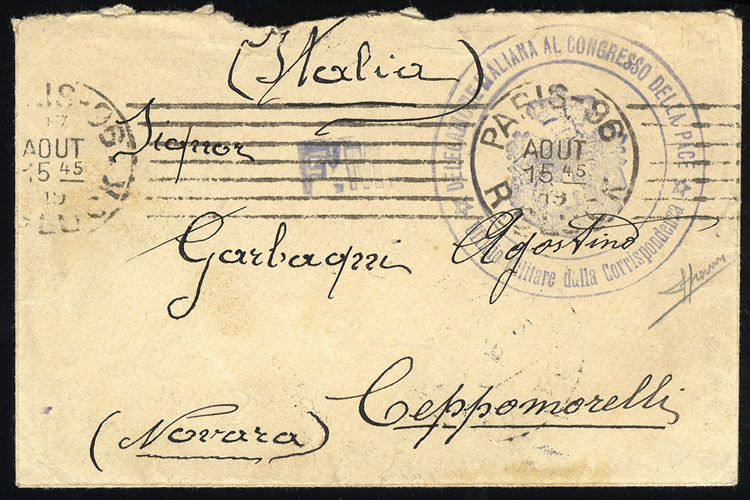 (Italia)
Signor
Garbagni Agostino
Ceppomorelli
(Novara)
DELEGAZIONE ITALIANA AL CONGRESSO DELLA PACE
Militare della Corrispondenza
PARIS-96
AOUT
15 45
19
R.
AOUT
15 45
19